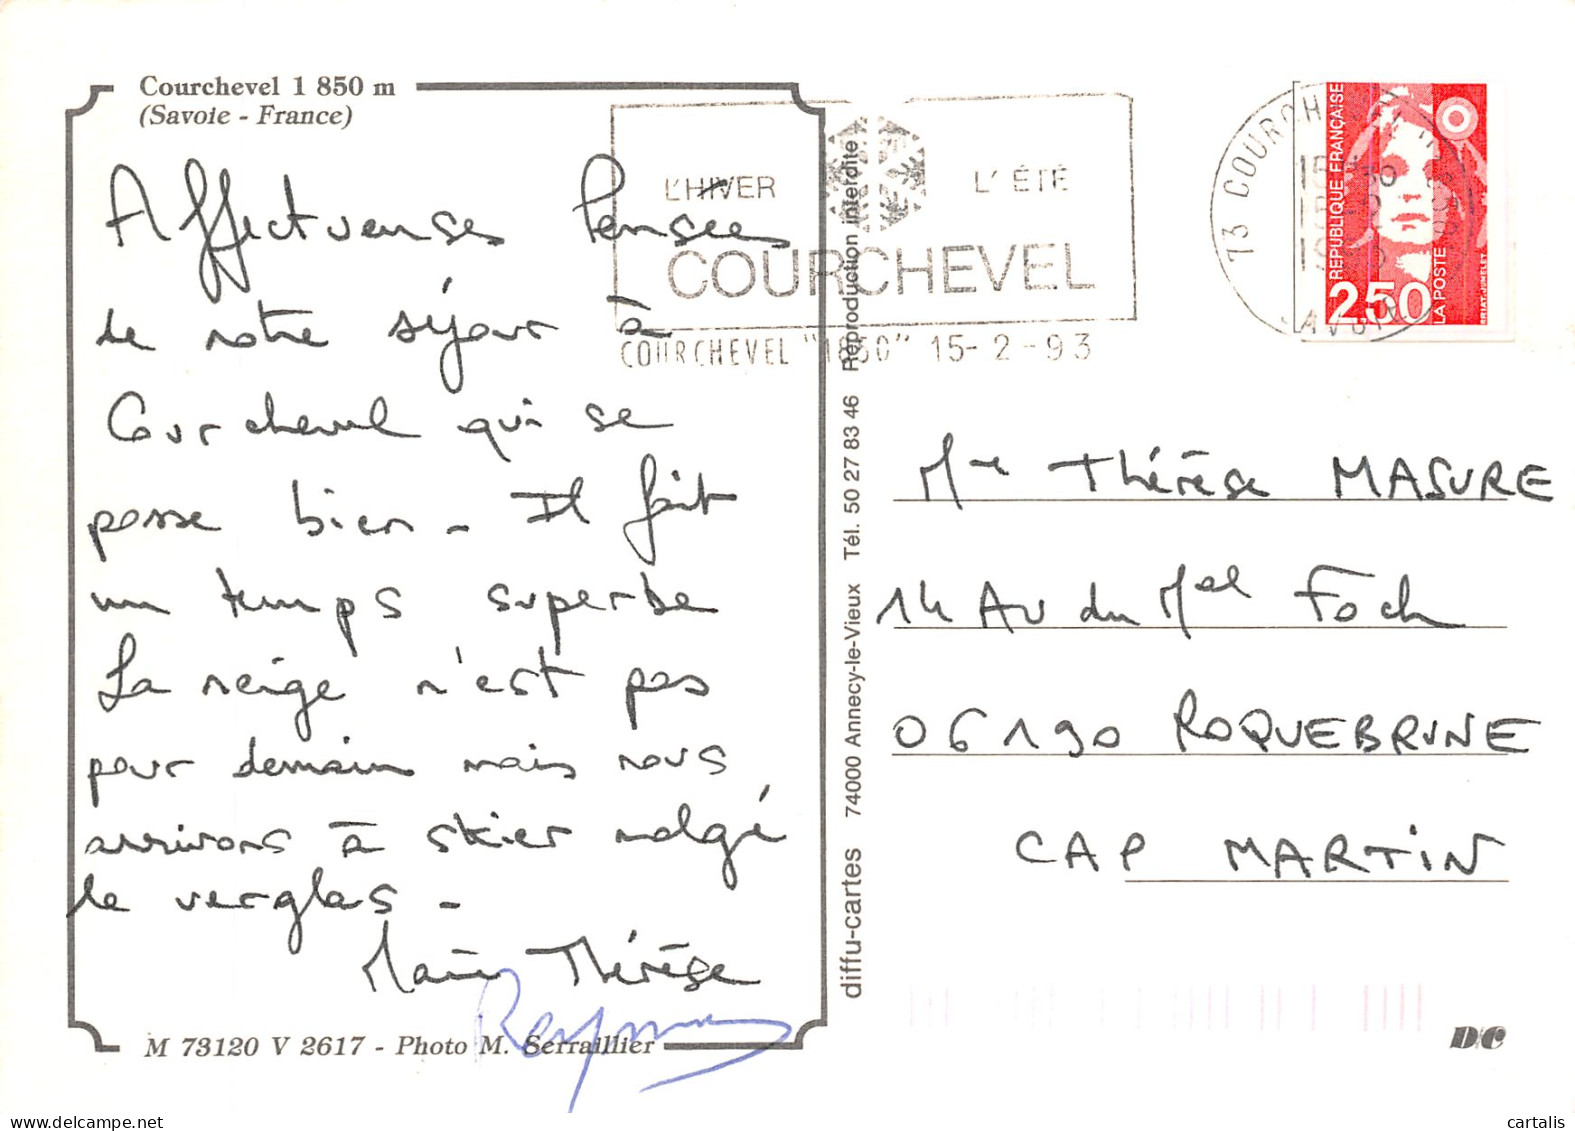 Courchevel 1 850 m
(Savoie - France)
Affectueuses Pensées
de notre séjour à
Courchevel qui se
passe bien - Il fait
un temps superbe
La neige n'est pas
pour demain mais nous
arrivons à skier malgé
le verglas -
Marie Thérèse
Raymond
M 73120 V 2617 - Photo M. Serraillier
L'HIVER L'ÉTÉ
COURCHEVEL
COURCHEVEL "1850" 15-2-93
diffu-cartes 74000 Annecy-le-Vieux Tél. 50 27 83 46 Reproduction interdite
73 COURCHEVEL
SAVOIE
RÉPUBLIQUE FRANÇAISE
2,50
LA POSTE
BRIAT-JUMELET
Mme Thérèse MASURE
14 AV du Mal Foch
06190 ROQUEBRUNE
CAP MARTIN
D/C
cartalis